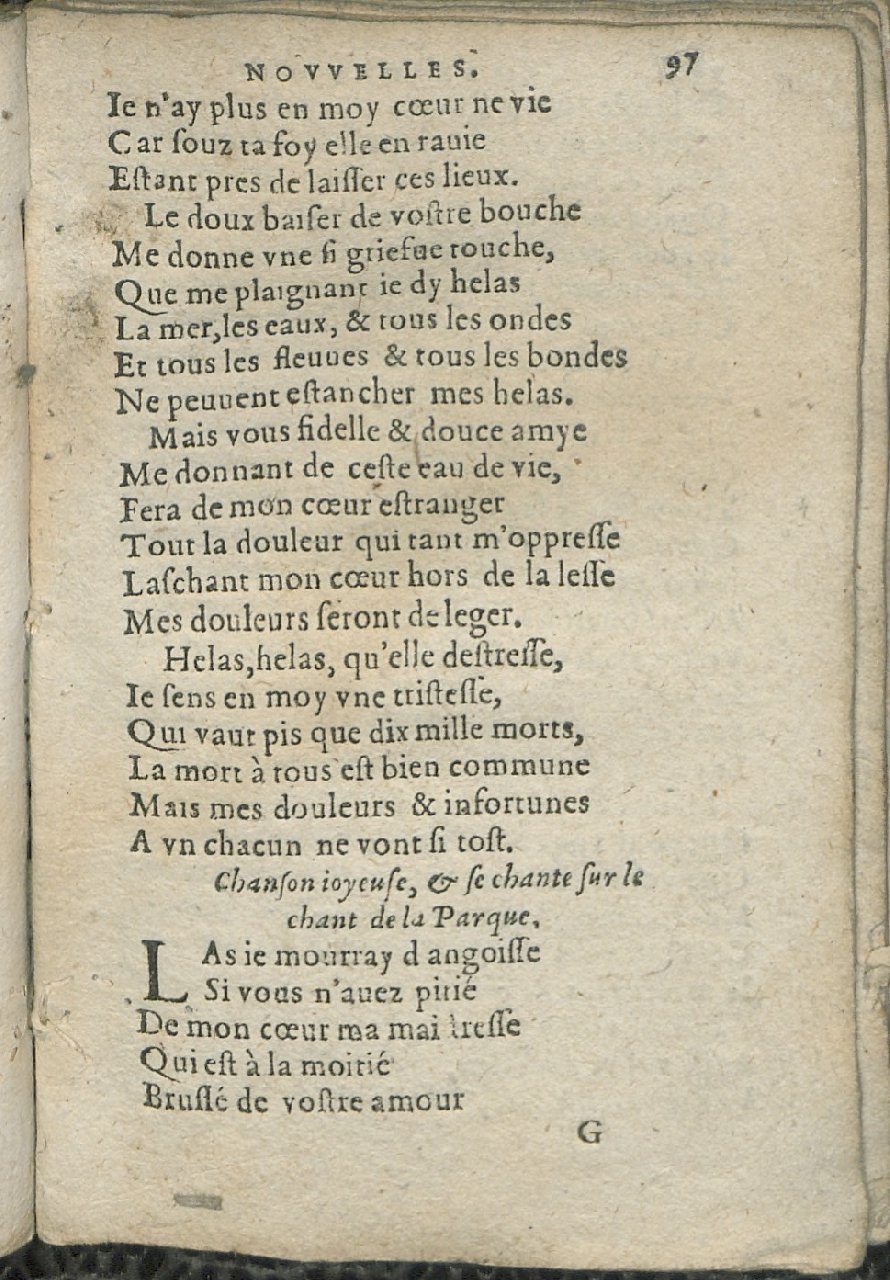 NOVVELLES. 97
Ie n'ay plus en moy cœur ne vie
Car ſouz ta foy elle en rauie
Eſtant pres de laiſſer ces lieux.
Le doux baiſer de voſtre bouche
Me donne vne ſi griefue touche,
Que me plaignant ie dy helas
La mer, les eaux, & tous les ondes
Et tous les fleuues & tous les bondes
Ne peuuent eſtancher mes helas.
Mais vous fidelle & douce amye
Me donnant de ceſte eau de vie,
Fera de mon cœur eſtranger
Tout la douleur qui tant m'oppreſſe
Laſchant mon cœur hors de la leſſe
Mes douleurs ſeront de leger.
Helas, helas, qu'elle deſtreſſe,
Ie ſens en moy vne triſteſſe,
Qui vaut pis que dix mille morts,
La mort à tous eſt bien commune
Mais mes douleurs & infortunes
A vn chacun ne vont ſi toſt.
Chanſon ioyeuſe, & ſe chante ſur le
chant de la Parque.
LAs ie mourray d angoiſſe
Si vous n'auez pitié
De mon cœur ma maitreſſe
Qui eſt à la moitié
Bruſlé de voſtre amour
G